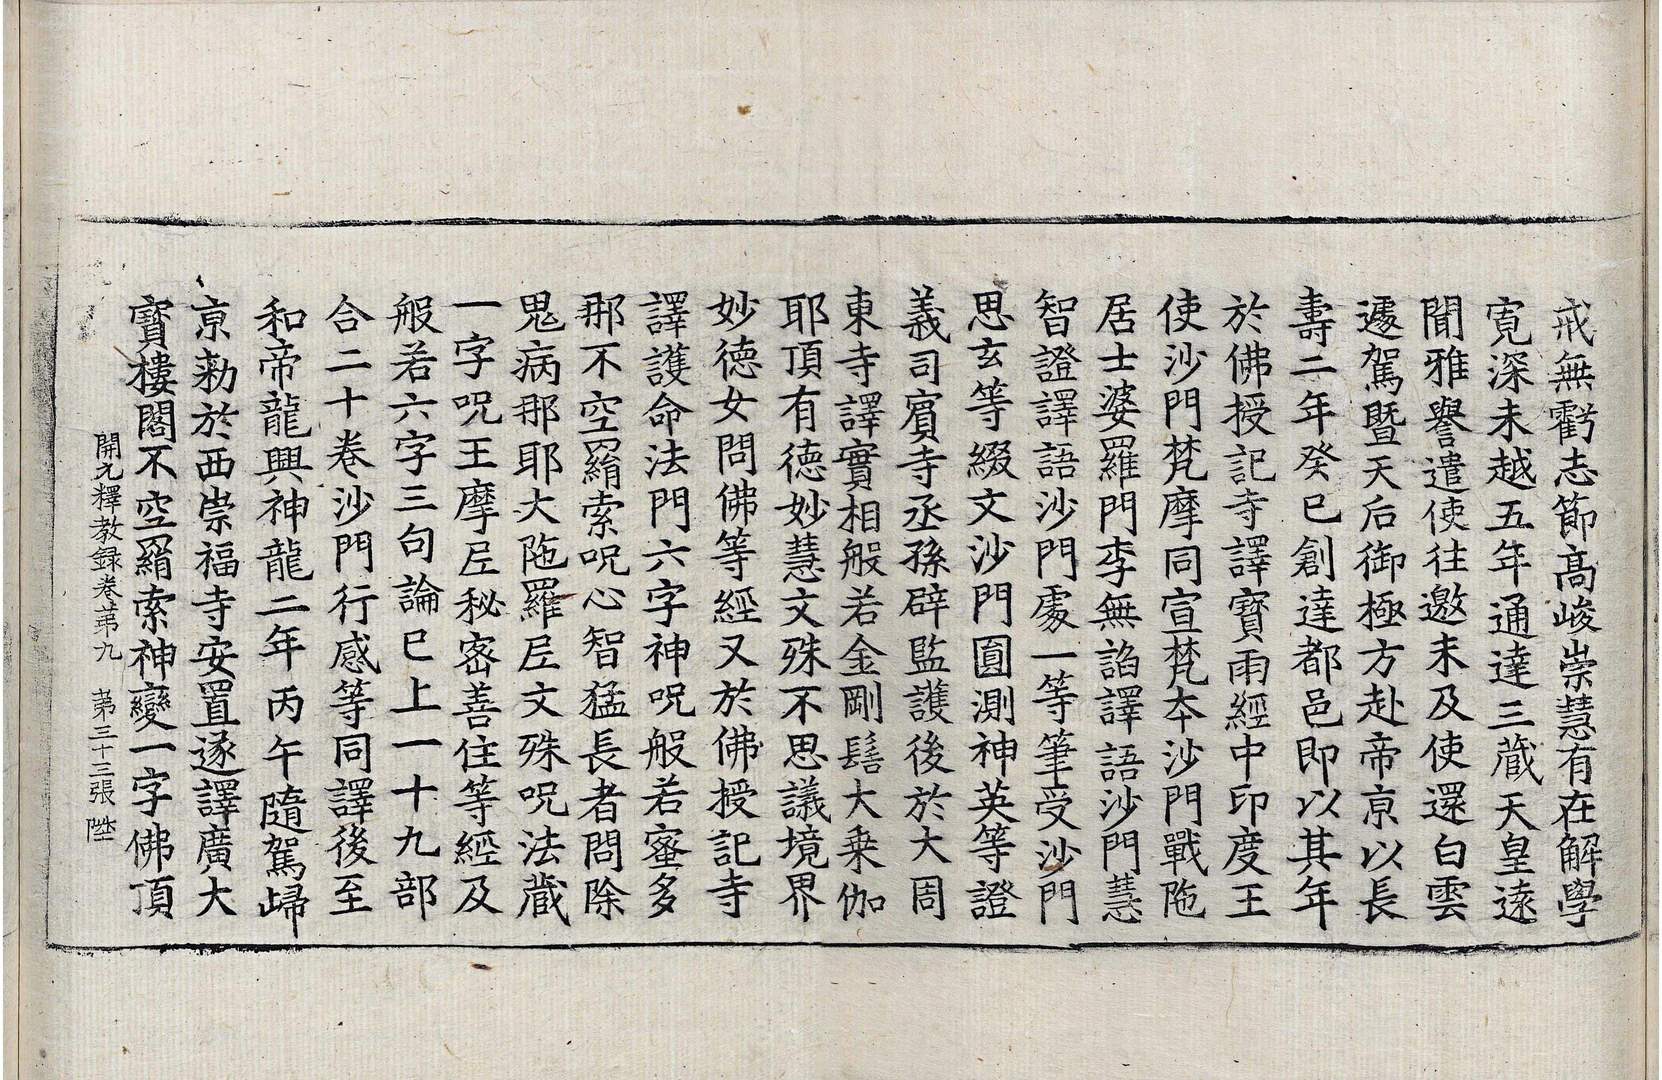 戒無虧志節高峻崇慧有在解學
寬深未越五年通達三藏天皇遠
聞雅譽遣使往邀未及使還白雲
遽駕暨天后御極方赴帝京以長
壽二年癸巳創達都邑即以其年
於佛授記寺譯寶雨經中印度王
使沙門梵摩同宣梵夲沙門戰陁
居士婆羅門李無諂譯語沙門慧
智證譯語沙門處一等筆受沙門
思玄等綴文沙門圓測神英等證
義司賓寺丞孫辟監護後於大周
東寺譯實相般若金剛髻大乗伽
耶頂有德妙慧文殊不思議境界
妙德女問佛等經又於佛授記寺
譯護命法門六字神呪般若蜜多
那不空羂索呪心智猛長者問除
鬼病那耶大陁羅尼文殊呪法藏
一字呪王摩尼秘密善住等經及
般若六字三句論巳上一十九部
合二十卷沙門行感等同譯後至
和帝龍興神龍二年丙午隨駕歸
京勑於西崇福寺安置遂譯廣大
寳樓閣不空羂索神變一字佛頂
開元釋教録卷苐九 苐三十三張 陞